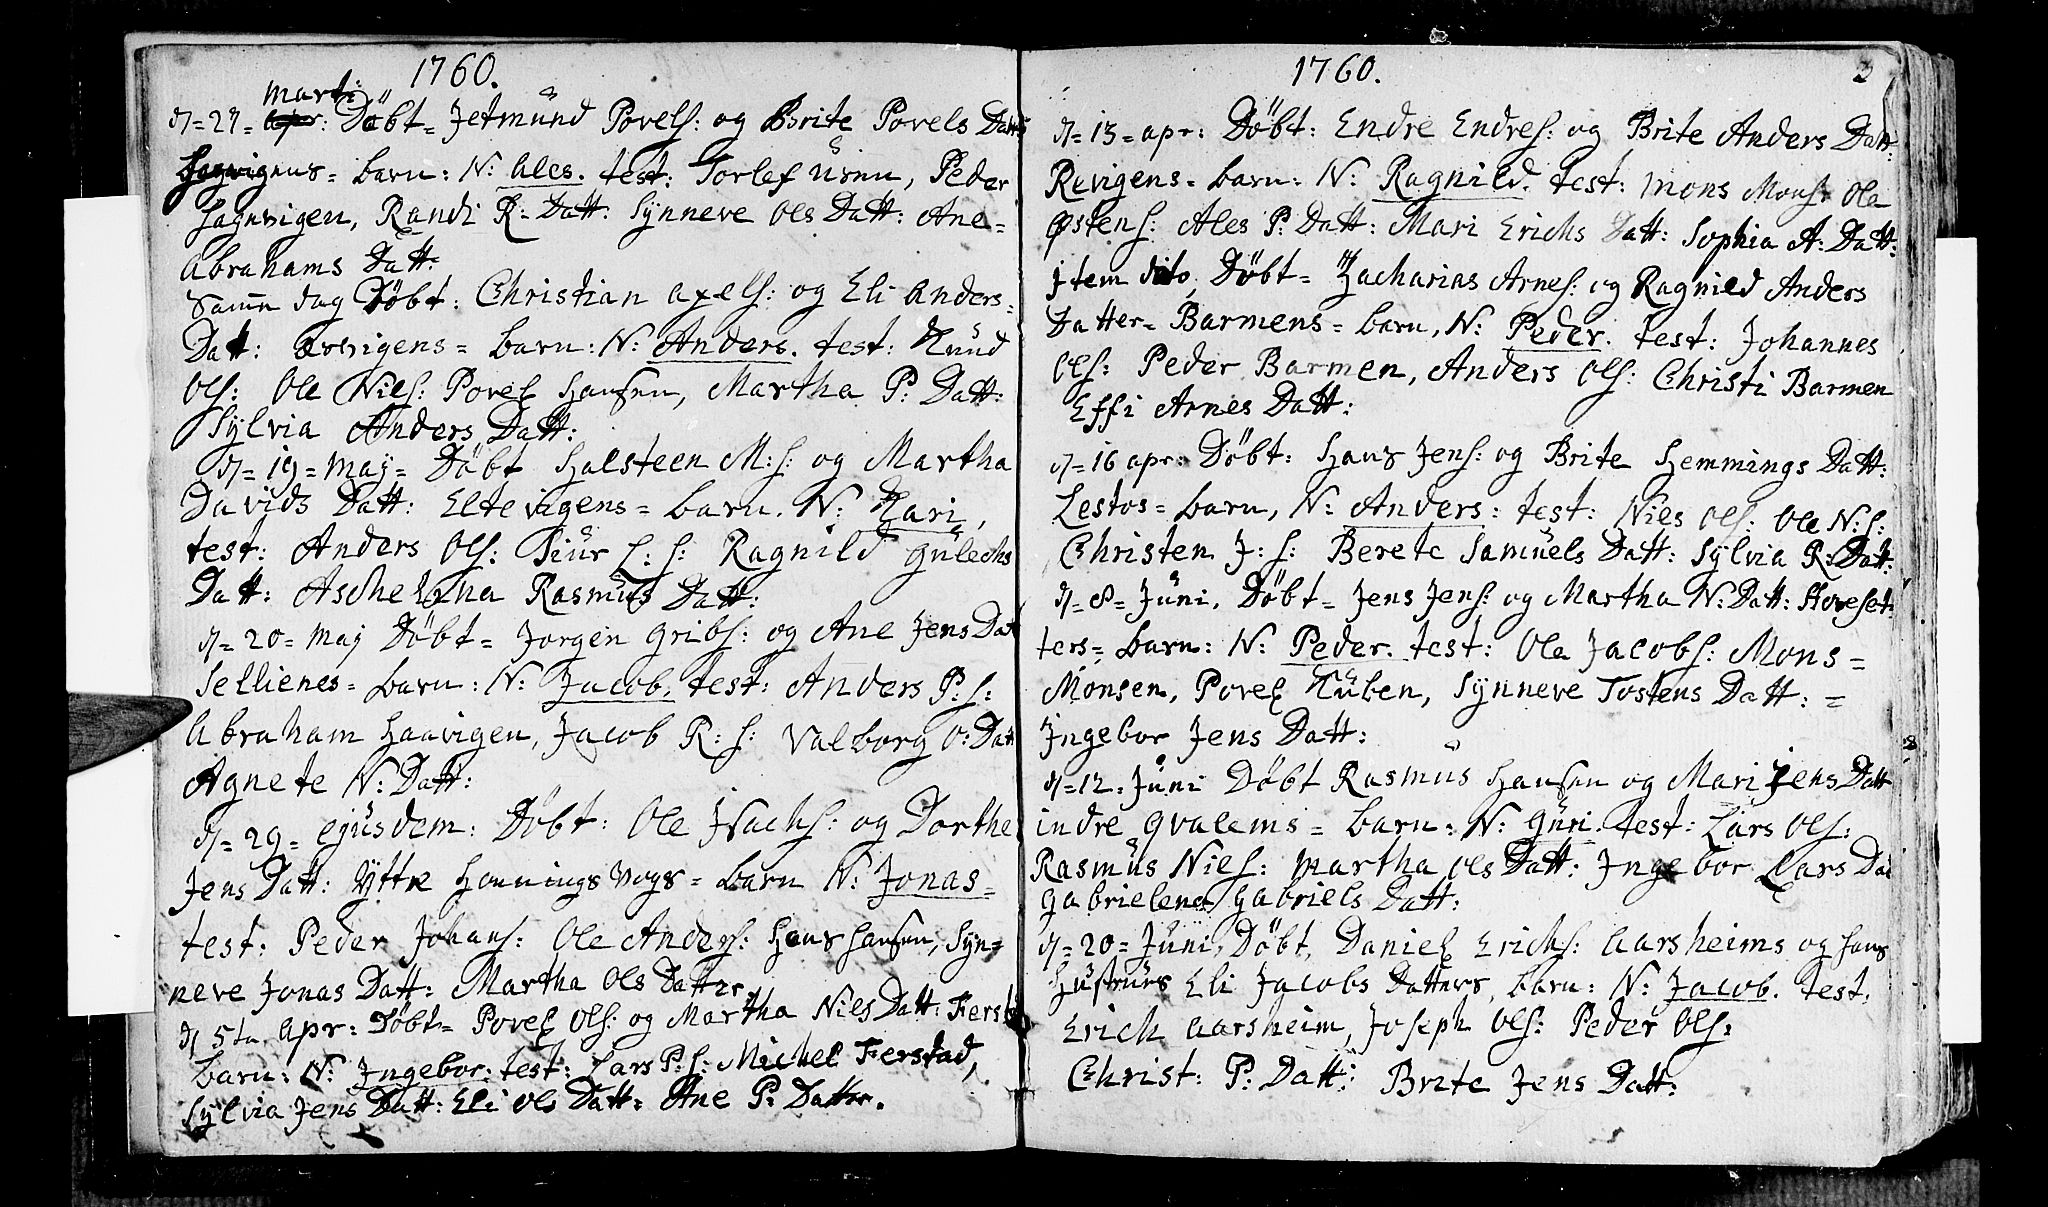 1760.
Marti
d. = 27 = apr: Döbt = Jetmünd Povels: og Brite Povels Datt:
Hagvigens = barn: N: Ales. test: Torlef Uren, Peder
Hagvigen, Randi R: Datt: Synneve Ols Datt: Ane =
Abrahams Datt:
Samm dag Döbt: Christian Axels: og Eli Anders =
Datt: Ervigens = barn: N: Anders. test: Knud
Ols: Ole Niels: Povel Hansen, Martha P: Datt:
Sylvia Anders Datt:
d. = 19 = May = Döbt Halsteen M: s: og Martha
Davids Datt: Eltevigens = barn. N: Kari,
test: Anders Ols: Siur L: s: Ragnild Gulechs
Datt: Aschelena Rasmus Datt:
d. = 20 = Maj Döbt = Jorgen Gribs: og Ane Jens Datt
Sellienes = barn: N: Jacob. test: Anders P: s:
Abraham Haavigen, Jacob R: s: Valborg O: Datt
Agnete N: Datt:
d. = 29 = ejusdem: Döbt: Ole Isachs: og Dorthe
Jens Datt: Yttre Honnings Vogs = barn N: Jonas =
test: Peder Johans: Ole Anders: Hans Hansen, Syn =
neve Jonas Datt: Martha Ols Datter
d. 5te Apr: Döbt = Povel Ols: og Martha Niels Datt: Ferst
barn: N: Ingebor: test: Lars P: s: Michel Ferstad,
Sylvia Jens Datt: Eli Ols Datt: Ane P: Datter.
1760.
d. = 15 = apr: Döbt: Endre Endres: og Brite Anders Datt:
Revigens = barn: N: Ragnild. test: Mons Mons: Ola
Østens: Ales P: Datt: Mari Erichs Datt: Sophia A: Datt:
Item dito, Döbt = Zacharias Arnes: og Ragnild Anders
Datter = Barmens = barn, N: Peder. test: Johannes
Ols: Peder Barmen, Anders Ols: Christi Barmen
Effi Arnes Datt:
d. = 16 apr: Döbt: Hans Jens: og Brite Hemmings Datt:
Lestos = barn, N: Anders: test: Niels Ols: Ole N: s:
Christen J: s: Berete Samuels Datt: Sylvia R: Datt:
d. = 8 = Juni, Döbt = Jens Jens: og Martha N: Datt: Horeset
ters = barn: N: Peder. test: Ole Jacobs: Mons =
Monsen, Povel Kuben, Synneve Tostens Datt: =
Ingebor Jens Datt:
d. = 12. Juni Döbt Rasmus Hansen og Mari Jens Datt
indre Qvalems = barn: N: Guri. test: Lars Ols:
Rasmus Niels: Martha Ols Datt: Ingebor Lars Dat
Gabrielena Gabriels Datt:
d. = 20 = Juni, Döbt, Daniel Erichs: Aarsheims og hans
Hustrues Eli Jacobs Datters, barn: N: Jacob. test:
Erich Aarsheim, Joseph Ols: Peder Ols:
Christ: P: Datt: Brite Jens Datt: